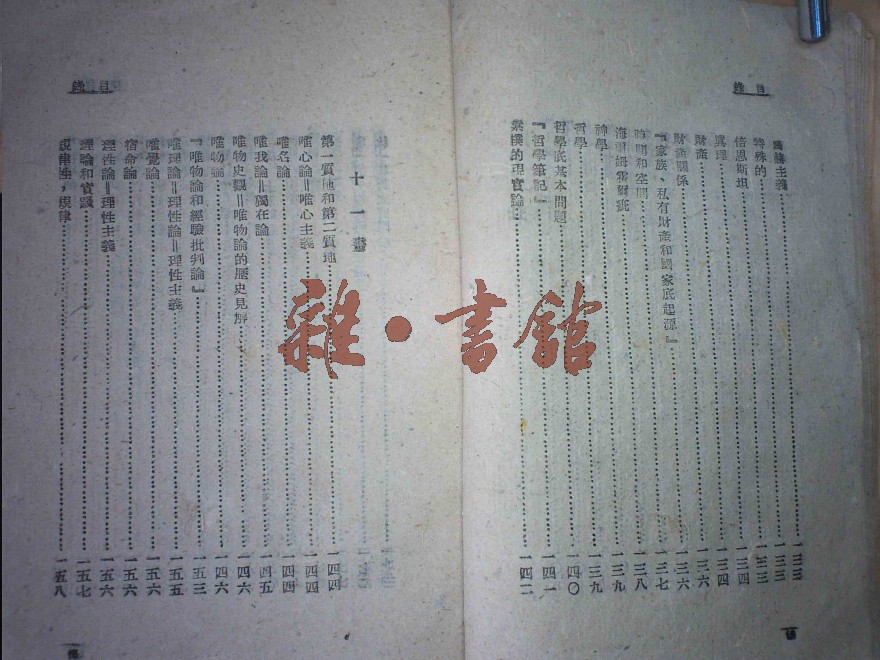 目錄
馬赫主義 一三三
特殊的 一三三
倍恩斯坦 一三四
眞理 一三四
財產 一三六
財產關係 一三六
『家族、私有財產和國家底起源』 一三七
時間和空間 一三八
一三九
神學 一三九
哲學 一四〇
哲學底基本問題 一四一
『哲學筆記』 一四一
素樸的現實論 一四二
目錄
十一畫
第一質地和第二質地 一四四
唯心論＝唯心主義 一四四
唯名論 一四四
唯我論＝獨在論 一四五
唯物史觀＝唯物論的歷史見解 一四六
唯物論 一四六
『唯物論和經驗批判論』 一五三
唯理論＝理性論＝理性主義 一五五
唯覺論 一五六
宿命論 一五六
理性論＝理性主義 一五六
理論和實踐 一五七
規律性，規律 一五八
雜·書館